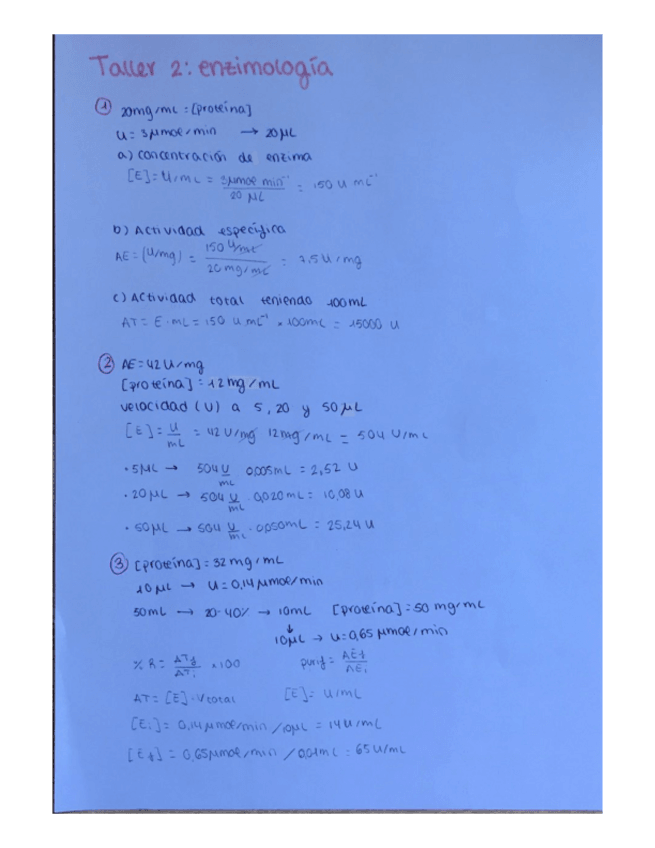 Taller 2: enzimología
① 20mg/mL = [proteína]
U = 3μmol/min → 20μL
a) concentración de enzima
[E] = U/mL = 3μmol min⁻¹ / 20 μL = 150 U mL⁻¹
b) Actividad específica
AE = (U/mg) = 150 U/mL / 20 mg/mL = 7,5 U/mg
c) Actividad total teniendo 100mL
AT = E · mL = 150 U mL⁻¹ · 100mL = 15000 U
② AE = 42 U/mg
[proteína] = 12 mg/mL
velocidad (U) a 5, 20 y 50μL
[E] = U/mL = 42 U/mg 12mg/mL = 504 U/mL
· 5μL → 504 U/mL 0,005mL = 2,52 U
· 20μL → 504 U/mL · 0,020mL = 10,08 U
· 50μL → 504 U/mL · 0,050mL = 25,24 U
③ [proteína] = 32 mg/mL
10μL → U = 0,14μmol/min
50mL → 20-40% → 10mL [proteína] = 50 mg/mL
↓
10μL → U = 0,65 μmol/min
% R = ATf/ATi × 100 purif = AEf/AEi
AT = [E] · Vtotal [E] = U/mL
[Ei] = 0,14μmol/min /10μL = 14U/mL
[Ef] = 0,65μmol/min /0,01mL = 65U/mL